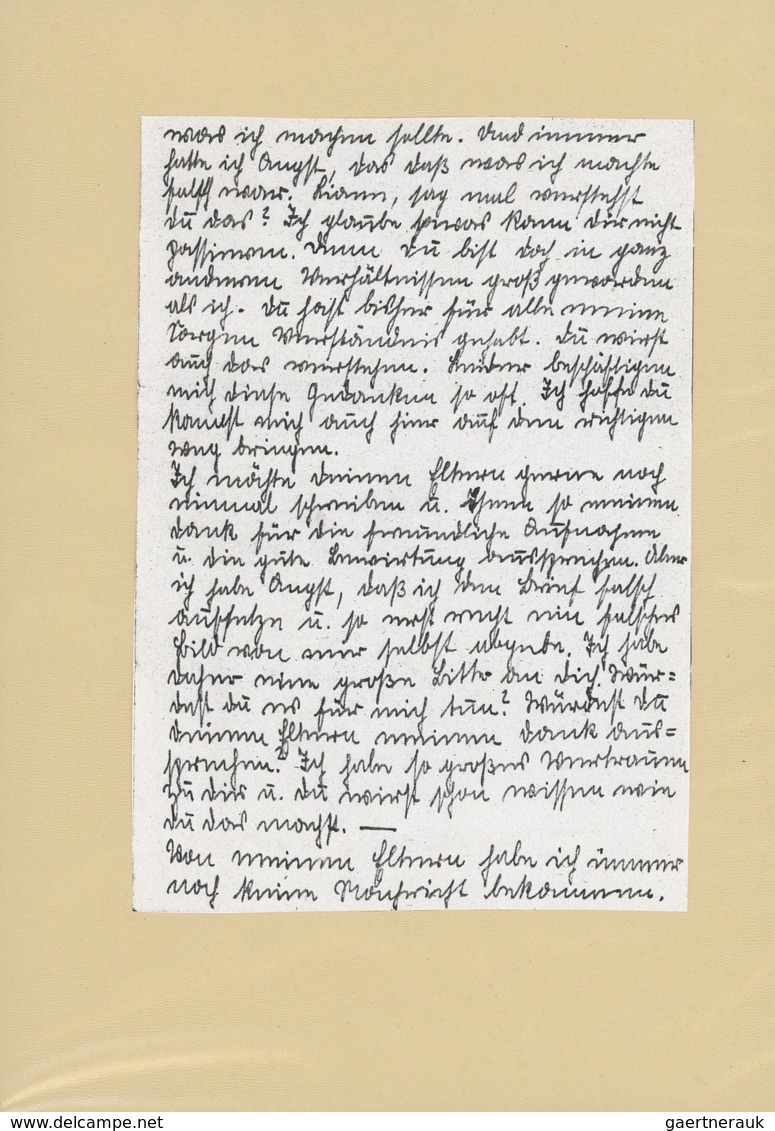 was ich machen sollte. Und immer
hatte ich Angst, das daß was ich machte
falsch war. Liann, sag mal verstehst
du das? Ich glaube sowas kann dir nicht
passieren. Denn du bist doch in ganz
anderen Verhältnissen groß geworden
als ich. Du hast bisher für alle meine
Sorgen Verständnis gehabt. Du wirst
auch das verstehen. Leider beschäftigen
mich diese Gedanken so oft. Ich hoffe du
kannst mich auch hier auf den richtigen
Weg bringen.
Ich möchte deinen Eltern gerne noch
einmal schreiben u. Ihnen so meinen
Dank für die freundliche Aufnahme
u. die gute Bewirtung aussprechen. Aber
ich habe Angst, daß ich den Brief falsch
aufsetze u. so erst recht ein falsches
Bild von mir selbst abgebe. Ich habe
daher eine große Bitte an dich. Wür=
dest du es für mich tun? Würdest du
deinen Eltern meinen Dank aus=
sprechen? Ich habe so großes Vertrauen
zu dir u. du wirst schon wissen wie
du das machst. —
Von meinen Eltern habe ich immer
noch keine Nachricht bekommen.
delcampe.net
gaertnerauk